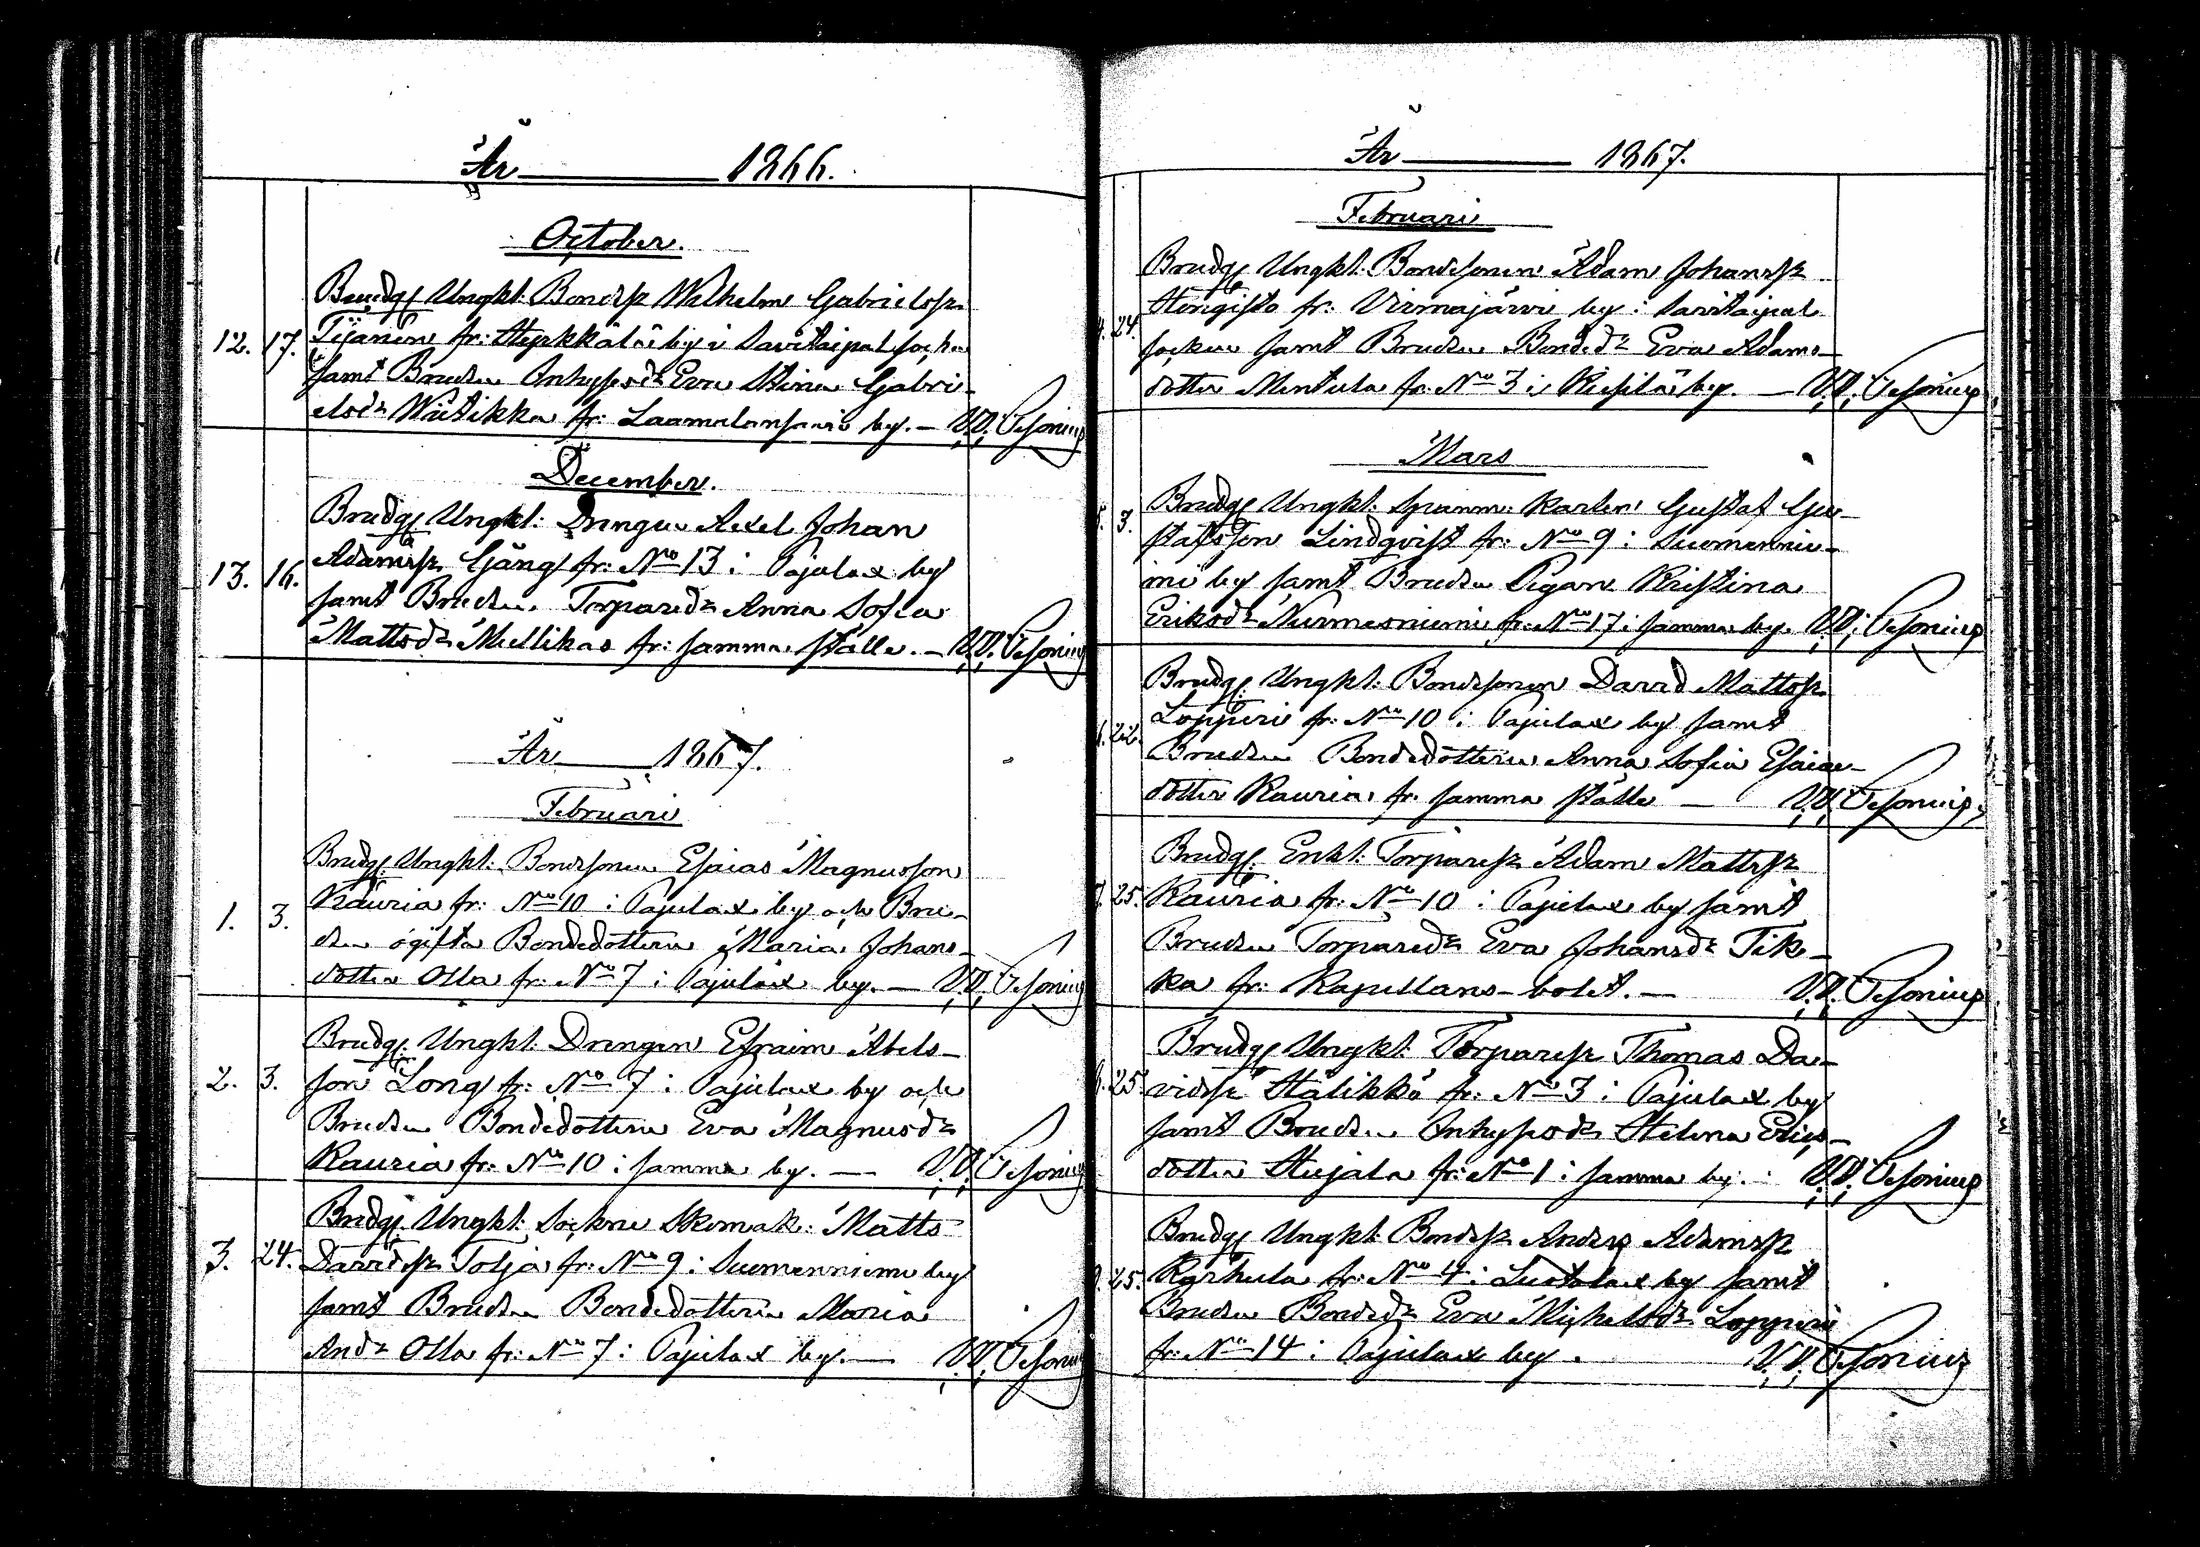 År 1866.
October.
Brudg. Ungkl. Bondes. Wilhelm Gabrielss.
12. 17. Tijanen fr: Hyrkkälä by i Savitaipal socken
samt Bruden Inhysesdr Eva Stina Gabri-
elsdr Wäitikka fr: Laamalansaari by. — V.V. Pesonius
December.
Brudg. Ungkl: Drängen Axel Johan
Adamss. Gäng fr: No 13 i Pajulax by
13. 16. samt Bruden Torparedr Anna Sofia
Mattsdr Mullikas fr: samma ställe. — V.V. Pesonius
År 1867.
Februari
Brudg. Ungkl: Bondesonen Esaias Magnusson
1. 3. Kauria fr: No 10 i Pajulax by och Bru-
den ogifta Bondedottern Maria Johans-
dotter Olla fr: No 7 i Pajulax by. — V.V. Pesonius
Brudg. Ungkl. Drengen Efraim Abels-
2. 3. son Long fr: No 7 i Pajulax by och
Bruden Bondedottern Eva Magnusdr
Kauria fr: No 10 i samma by. — V.V. Pesonius
Brudg. Ungkl. Sockne Skomak: Matts
3. 24. Davidss. Tolja fr: No 9 i Suomenniemi by
samt Bruden Bondedottern Maria
Andr Olla fr: No 7 i Pajulax by. — V.V. Pesonius
År 1867.
Februari
Brudg. Ungkl: Bondesonen Adam Johanss.
24. Hengisto fr: Virmajärvi by i Savitaipal
socken samt Bruden Bondedr Eva Adams-
dotter Mentula fr: No 3 i Kiesilä by. — V.V. Pesonius
Mars
Brudg. Ungkl: Spannm: Karlen Gustaf Gu-
3. stafsson Lindqvist fr: No 9 i Suomennie-
mi by samt Bruden Pigan Kristina
Eriksdr Nurmesniemi fr: No 17 i samma by. V.V. Pesonius
Brudg. Ungkl: Bondesonen David Mattss.
22. Lopperi fr: No 10 i Pajulax by samt
Bruden Bondedottern Anna Sofia Esaiae-
dotter Kauria fr. samma ställe — V.V. Pesonius
Brudg. Enkl: Torpares. Adam Mattss.
7. 25. Kauria fr: No 10 i Pajulax by samt
Bruden Torparedr Eva Johansdr Tik-
ka fr: Kapellans-bolet. — V.V. Pesonius
Brudg. Ungkl. Torpares. Thomas Da-
25. vidss. Hälikkä fr: No 3 i Pajulax by
samt Bruden Inhysesdr Helena Erics-
dotter Hujala fr: No 1 i samma by. V.V. Pesonius
Brudg. Ungkl. Bondes. Anders Adamss.
25. Karhula fr: No 4 i Luotolax by samt
Bruden Bondedr Eva Michelsdr Lopperi
fr: No 14 i Pajulax by. V.V. Pesonius